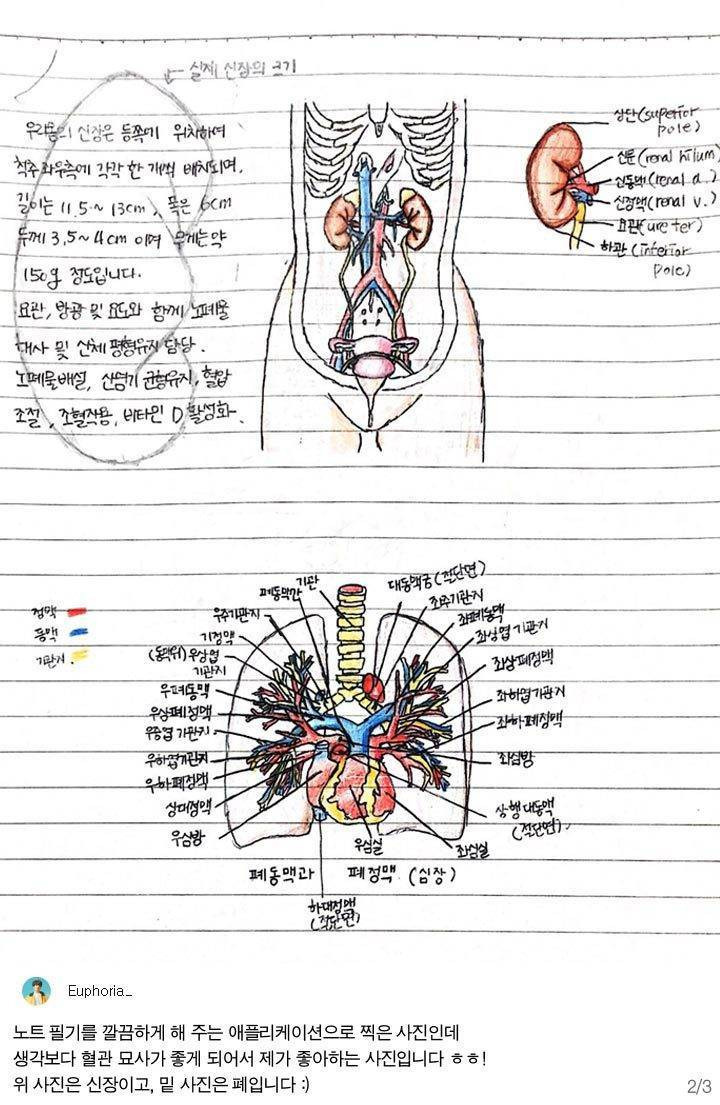 실제 신장의 크기
우리몸의 신장은 등쪽에 위치하여
척추 좌우측에 각각 한 개씩 배치되며,
길이는 11.5~13cm, 폭은 6cm
두께 3.5~4cm 이며 무게는 약
150g 정도입니다.
요관, 방광 및 요도와 함께 노폐물
대사 및 신체 평형유지 담당.
노폐물배설, 산염기 균형유지, 혈압
조절, 조혈작용, 비타민 D 활성화.
상단(superior
pole)
신문(renal hilum)
신동맥(renal a.)
신정맥(renal v.)
요관(ureter)
하관(inferior
pole)
정맥
동맥
기관지
기관
폐동맥간
우주기관지
기정맥
(동맥위) 우상엽
기관지
우폐동맥
우상폐정맥
우중엽 기관지
우하엽기관지
우하폐정맥
상대정맥
우심방
대동맥궁(절단면)
좌주기관지
좌폐동맥
좌상엽 기관지
좌상폐정맥
좌하엽기관지
좌하폐정맥
좌심방
상행대동맥
(절단면)
우심실
좌심실
폐동맥과 폐정맥. (심장)
하대정맥
(절단면)
Euphoria_
노트 필기를 깔끔하게 해 주는 애플리케이션으로 찍은 사진인데
생각보다 혈관 묘사가 좋게 되어서 제가 좋아하는 사진입니다 ㅎㅎ!
위 사진은 신장이고, 밑 사진은 폐입니다 :)
2/3